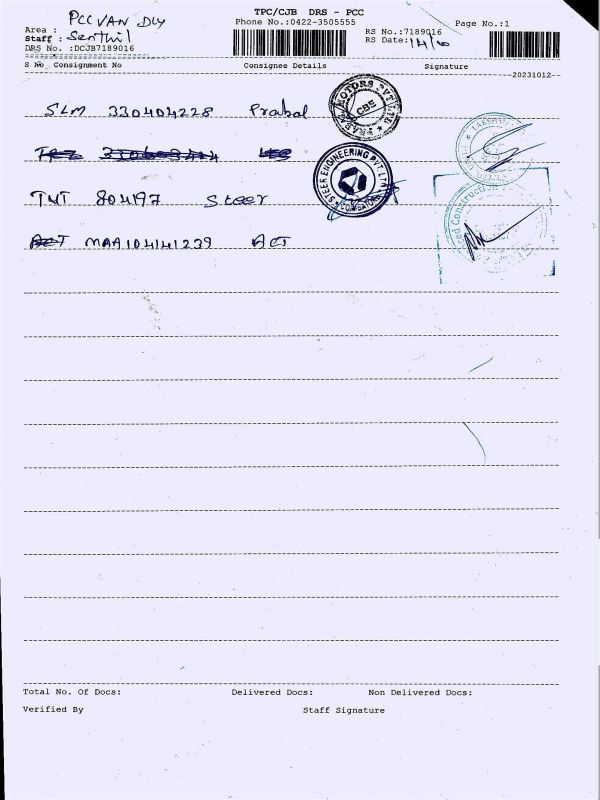 TPC/CJB DRS - PCC
PCC VAN DLY
Phone No.:0422-3505555
Page No.:1
Area :
RS No.:7189016
Staff : Senthil
RS Date:
DRS No. :DCJB7189016
S No Consignment No Consignee Details Signature
20231012
SLM 330404228 Prabal
MOTORS PVT LTD
CBE
TMT 804197 Steer
STEER ENGINEERING PVT. LTD
MAA104141239 ACT
Total No. Of Docs: Delivered Docs: Non Delivered Docs:
Verified By Staff Signature